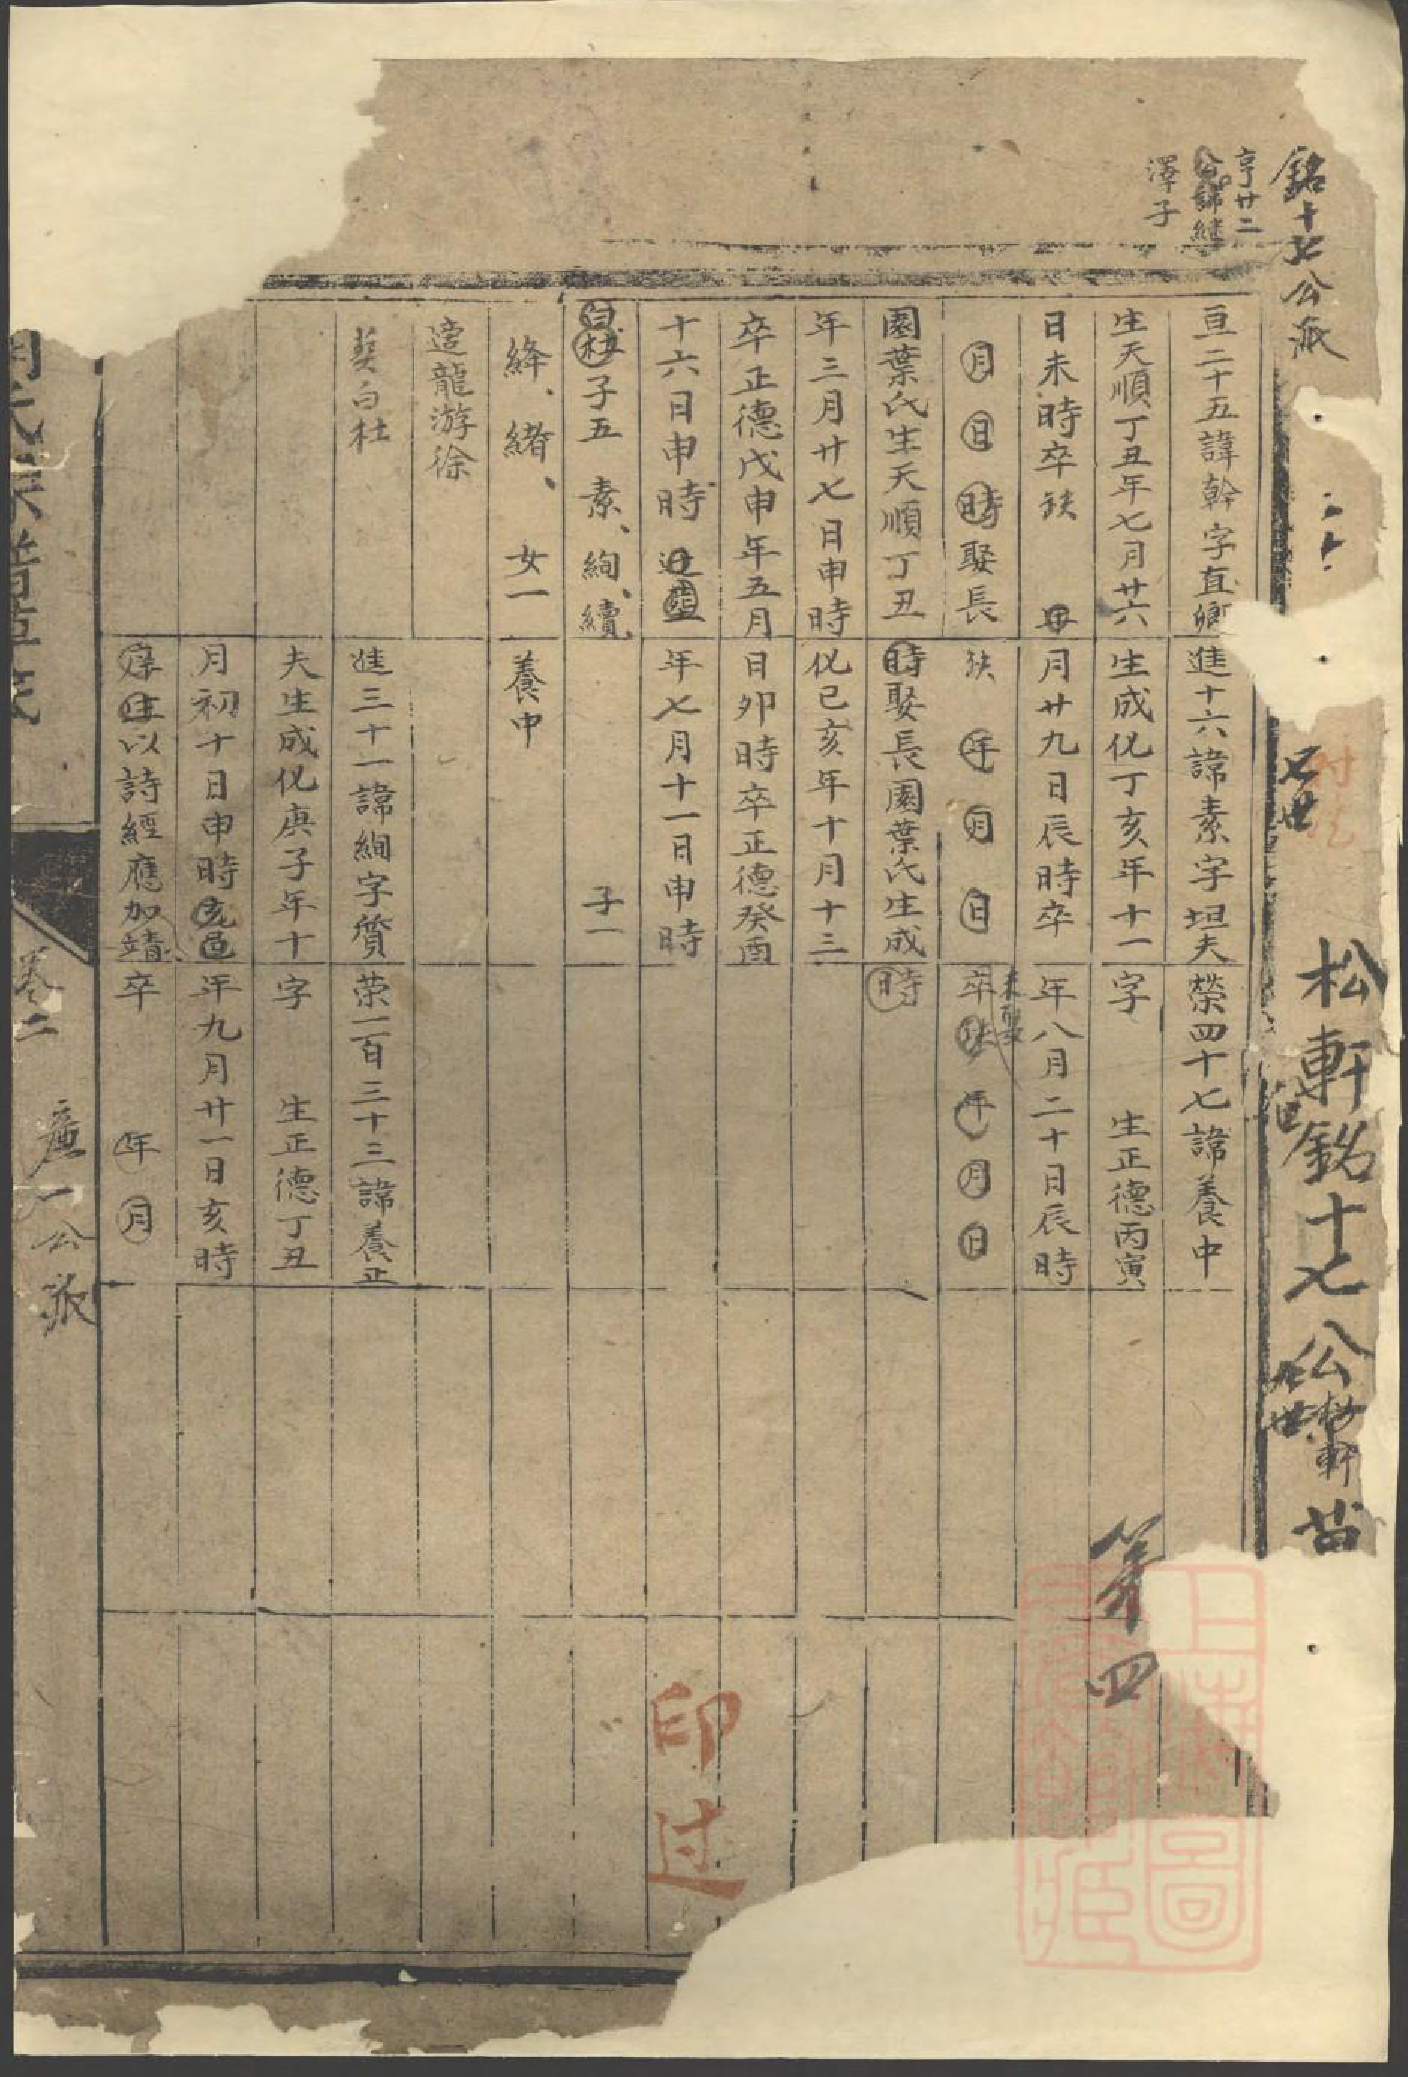 銘十七公派
亨廿二
公諱繼
澤子
松軒銘十七公
松軒
七世
亘二十五諱幹字直卿
生天順丁丑年七月廿六
日未時卒缺
月日時娶長
園葉氏生天順丁丑
年三月廿七日申時
卒正德戊申年五月
十六日申時
白杜子五素、絢、續
絳、緒、女一
適龍游徐
葬白杜
進十六諱素字坦夫
生成化丁亥年十一
月廿九日辰時卒
缺年月日
時娶長園葉氏生成
化己亥年十月十三
日卯時卒正德癸酉
年七月十一日申時
子一
養中
進三十一諱絢字質
夫生成化庚子年十
月初十日申時充邑
庠生以詩經應加靖
榮四十七諱養中
字 生正德丙寅
年八月二十日辰時
未娶
卒缺年月日
時
荣一百三十三諱養正
字 生正德丁丑
年九月廿一日亥時
卒 年月
第四
印过
上海圖
書館藏
氏宗譜
卷二
一公派